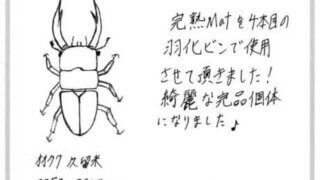 完熟Matを4本目の
羽化ビンで使用
させて頂きました！
綺麗な完品個体
になりました♪
オオクワ 久留米